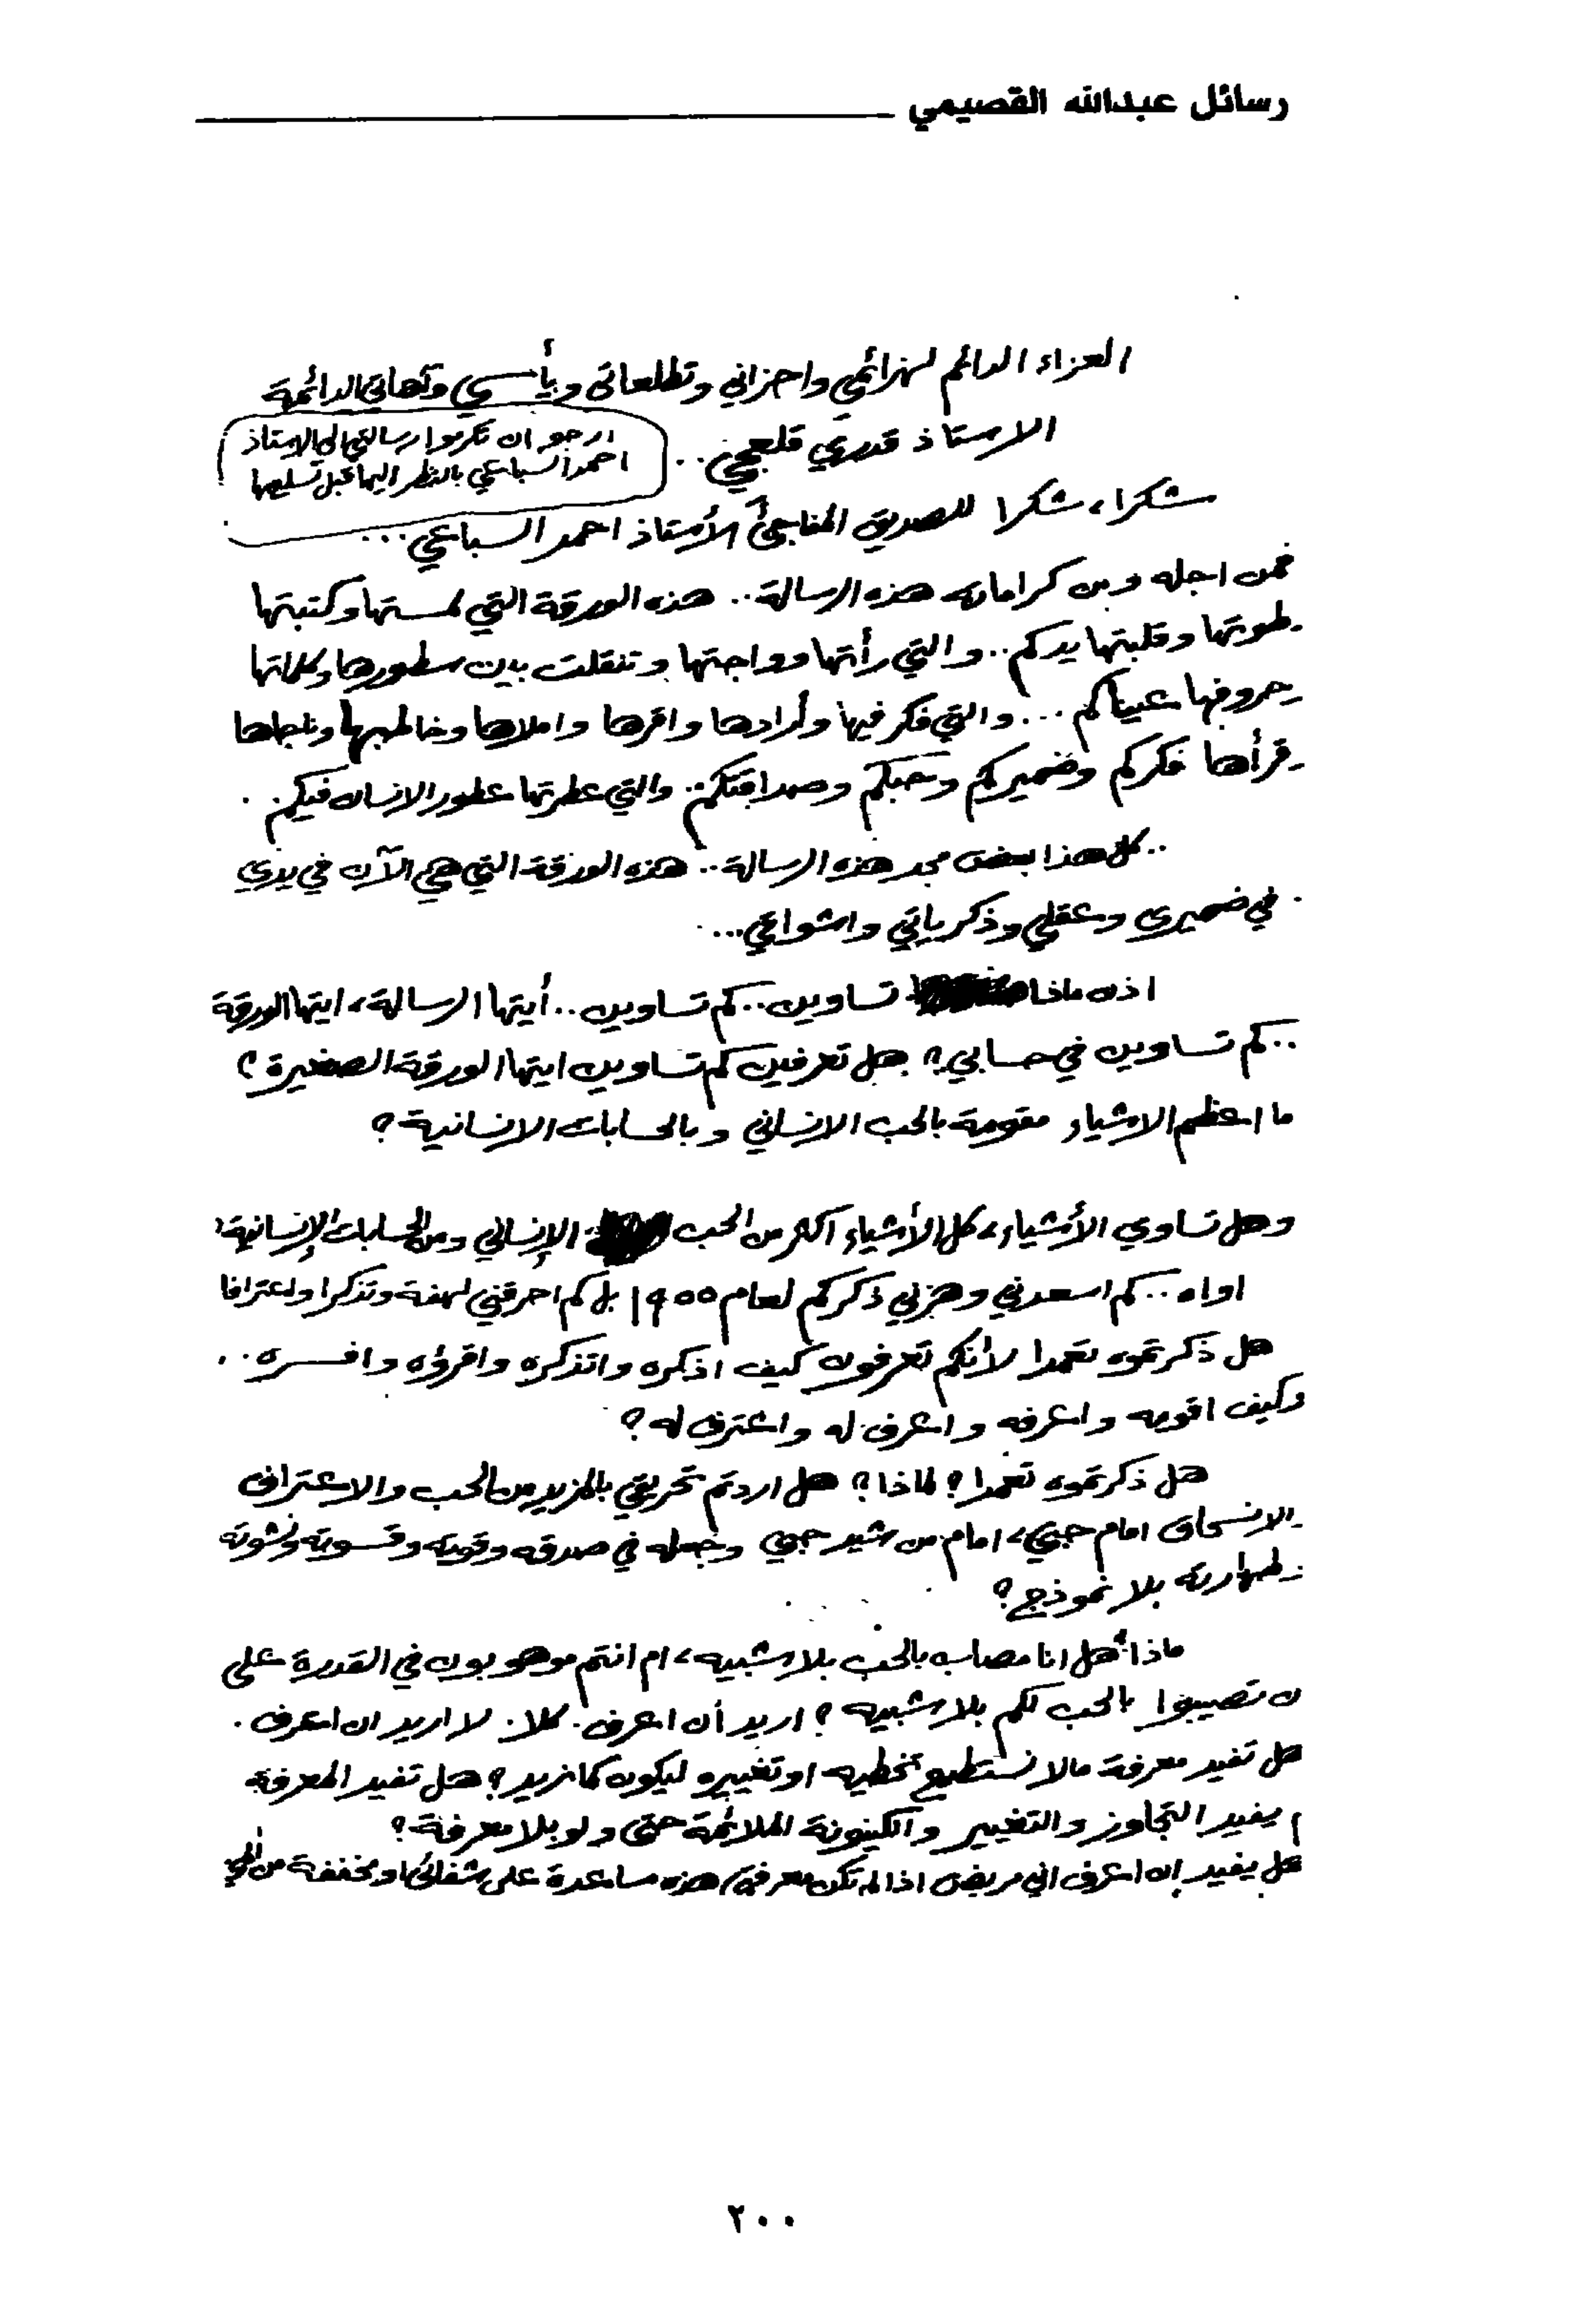 رسائل عبدالله القصيمي
العزاء الدائم لهزائمي واحزاني وتطلعاتي ويأسي وآهاتي الدائمة
الاستاذ قدري قلعجي..
ارجو ان تكرموا رسالتي الى الاستاذ
احمد السباعي بالنظر اليها قبل تسليمها
شكرا، شكرا للصديق المفاجئ الأستاذ احمد السباعي...
فمن اجله ومن كراماته هذه الرسالة.. هذه الورقة التي لمستها وكتبتها
وطوتها وقلبتها يدكم.. والتي رأتها وواجتها وتنقلت بين سطورها وكلماتها
وحروفها عيناكم... والتي فكر فيها وأرادها واقرها واملاها وخاطبها وناجاها
وقرأها فكركم وضميركم وحبكم وصداقتكم. والتي عطرتها عطور الانسان فيكم.
.. كل هذا بعض مجد هذه الرسالة.. هذه الورقة التي هي الآن في يدي
. في ضميري وعقلي وذكرياتي واشواقي...
اذن ماذا تساوين.. كم تساوين.. أيتها الرسالة، ايتها الورقة
.. كم تساوين في حسابي؟ هل تعرفين كم تساوين ايتها الورقة الصغيرة؟
ما اعظم الاشياء مقومة بالحب الانساني وبالحسابات الانسانية؟
وهل تساوي الأشياء، كل الأشياء اكثر من الحب الإنساني ومن الحسابات الإنسانية؟
اواه.. كم اسعدني وهزني ذكركم لعام ١٩٥٥ بل كم احرقني لهفة وتذكرا واعترافا
هل ذكرتموه تعمدا لانكم تعرفون كيف اذكره واتذكره واقرؤه وافسره..
وكيف اقومه واعرفه واعرف له واعترف له؟
هل ذكرتموه تعمدا؟ لماذا؟ هل اردتم تحريقي بالمزيد من الحب والاعتراف
والانسحاق امام حبي، امام من شيد حبي وجعله في صدقه وقوته وقسوته ونشوته
وطهارته بلا نموذج؟
ماذا هل انا مصاب بالحب بلا شبيه، ام انتم موهوبون في القدرة على
ن تصيبوا بالحب لكم بلا شبيه؟ اريد أن اعرف. كلا. لا اريد ان اعرف.
هل تفيد معرفة مالا نستطيع تخطيه او تغييره ليكون كما نريد؟ هل تفيد المعرفة
م يفيد التجاوز والتغيير والكينونة الملائمة حتى ولو بلا معرفة؟
هل يفيد ان اعرف اني مريض اذا لم تكن معرفتي هذه مساعدة على شفائي او مخففة من
٢٠٠